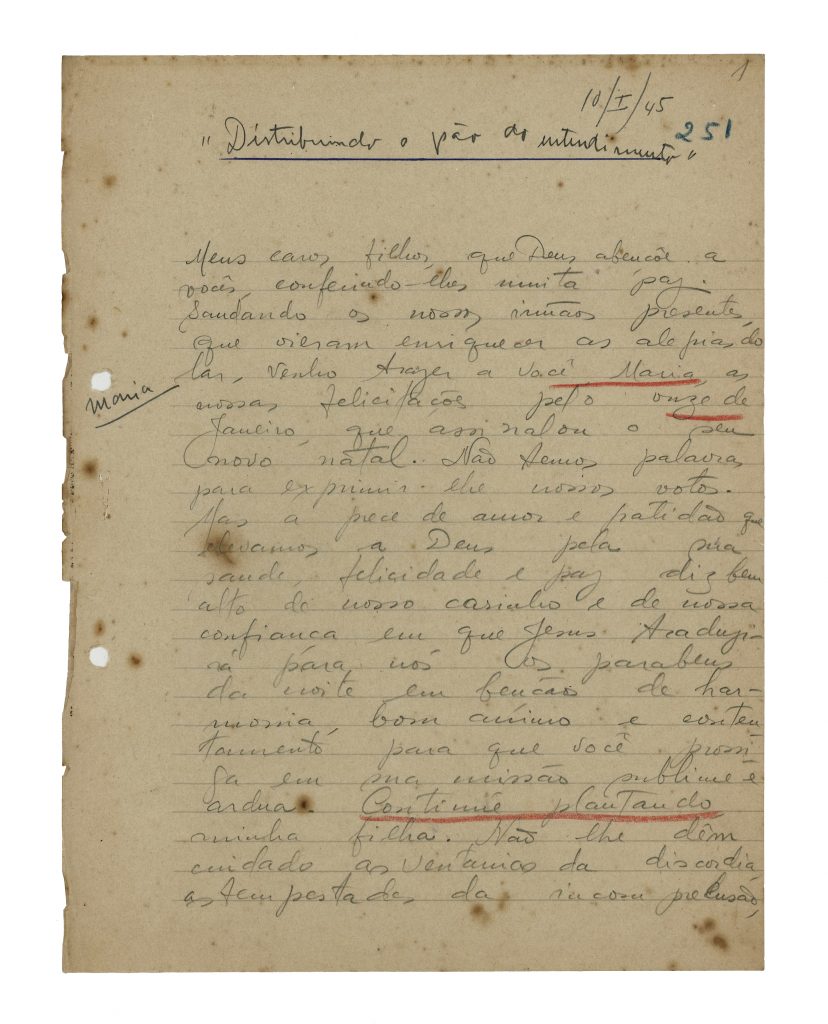 1
10/I/45
251
"Distribuindo o pão do entendimento"
Meus caros filhos, que Deus abençôe a
vocês, conferindo-lhes muita paz.
Saudando os nossos irmãos presentes,
que vieram enriquecer as alegrias do
lar, venho trazer a você, Maria, as
Maria
nossas felicitações pelo onze de
Janeiro, que assinalou o seu
novo natal. Não temos palavras
para exprimir-lhe nossos votos.
Mas a prece de amor e gratidão que
elevamos a Deus pela sua
saude, felicidade e paz diz bem
alto de nosso carinho e de nossa
confiança em que Jesus traduzi-
rá para nós os parabens
da noite em bençãos de har-
monia, bom animo e conten
tamento para que você prossi
ga em sua missão sublime e
ardua. Continúe plantando,
minha filha. Não lhe dêm
cuidado as ventanias da discordia,
as tempestades da incompreensão,